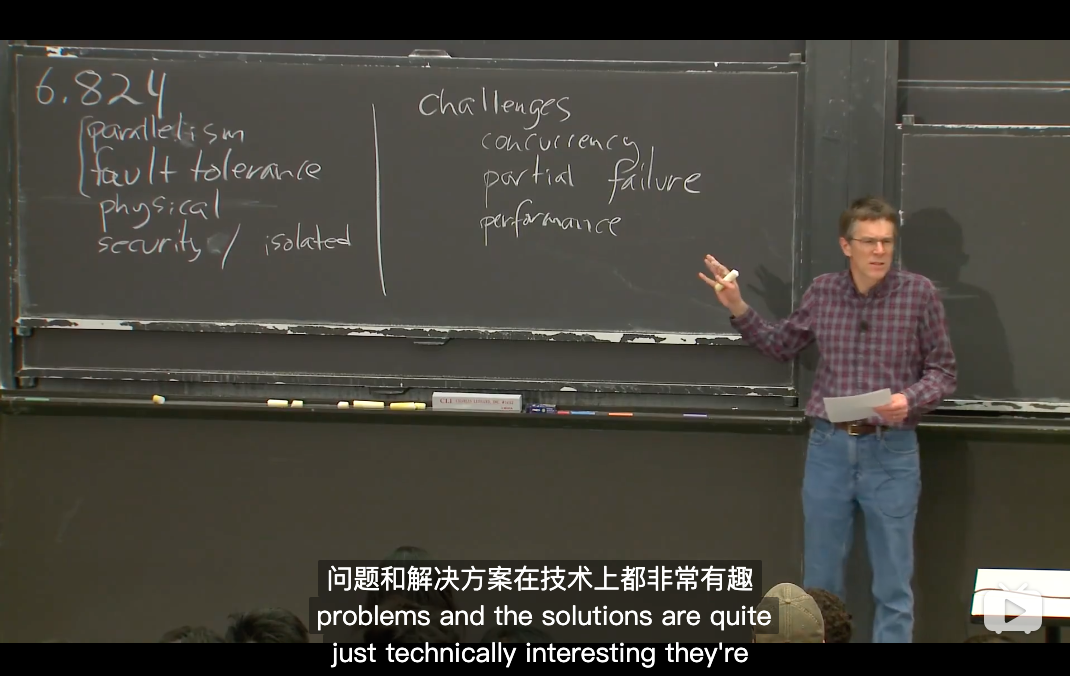 6.824
parallelism
fault tolerance
physical
security / isolated
Challenges
concurrency
partial failure
performance
问题和解决方案在技术上都非常有趣
problems and the solutions are quite
just technically interesting they're